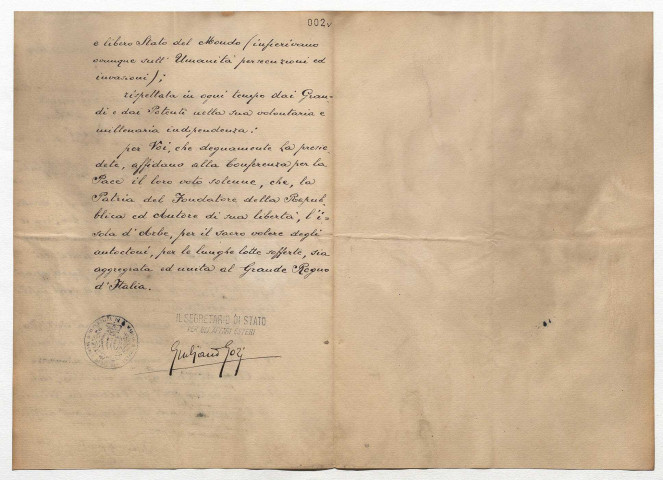 002v
e libero Stato del Mondo (inferivano
ovunque sull' Umanità persecuzioni ed
invasioni);
rispettata in ogni tempo dai Gran-
di e dai Potenti nella sua volontaria e
millenaria indipendenza:
per Voi, che degnamente La presie
dete, affidano alla Conferenza per la
Pace il loro voto solenne, che, la
Patria del Fondatore della Repub-
blica ed Autore di sua libertà, l'i-
sola d'Arbe, per il sacro volere degli
autoctoni, per le lunghe lotte sofferte, sia
aggregata ed unita al Grande Regno
d'Italia.
IL SEGRETARIO DI STATO
PER GLI AFFARI ESTERI
Giuliano Gozi